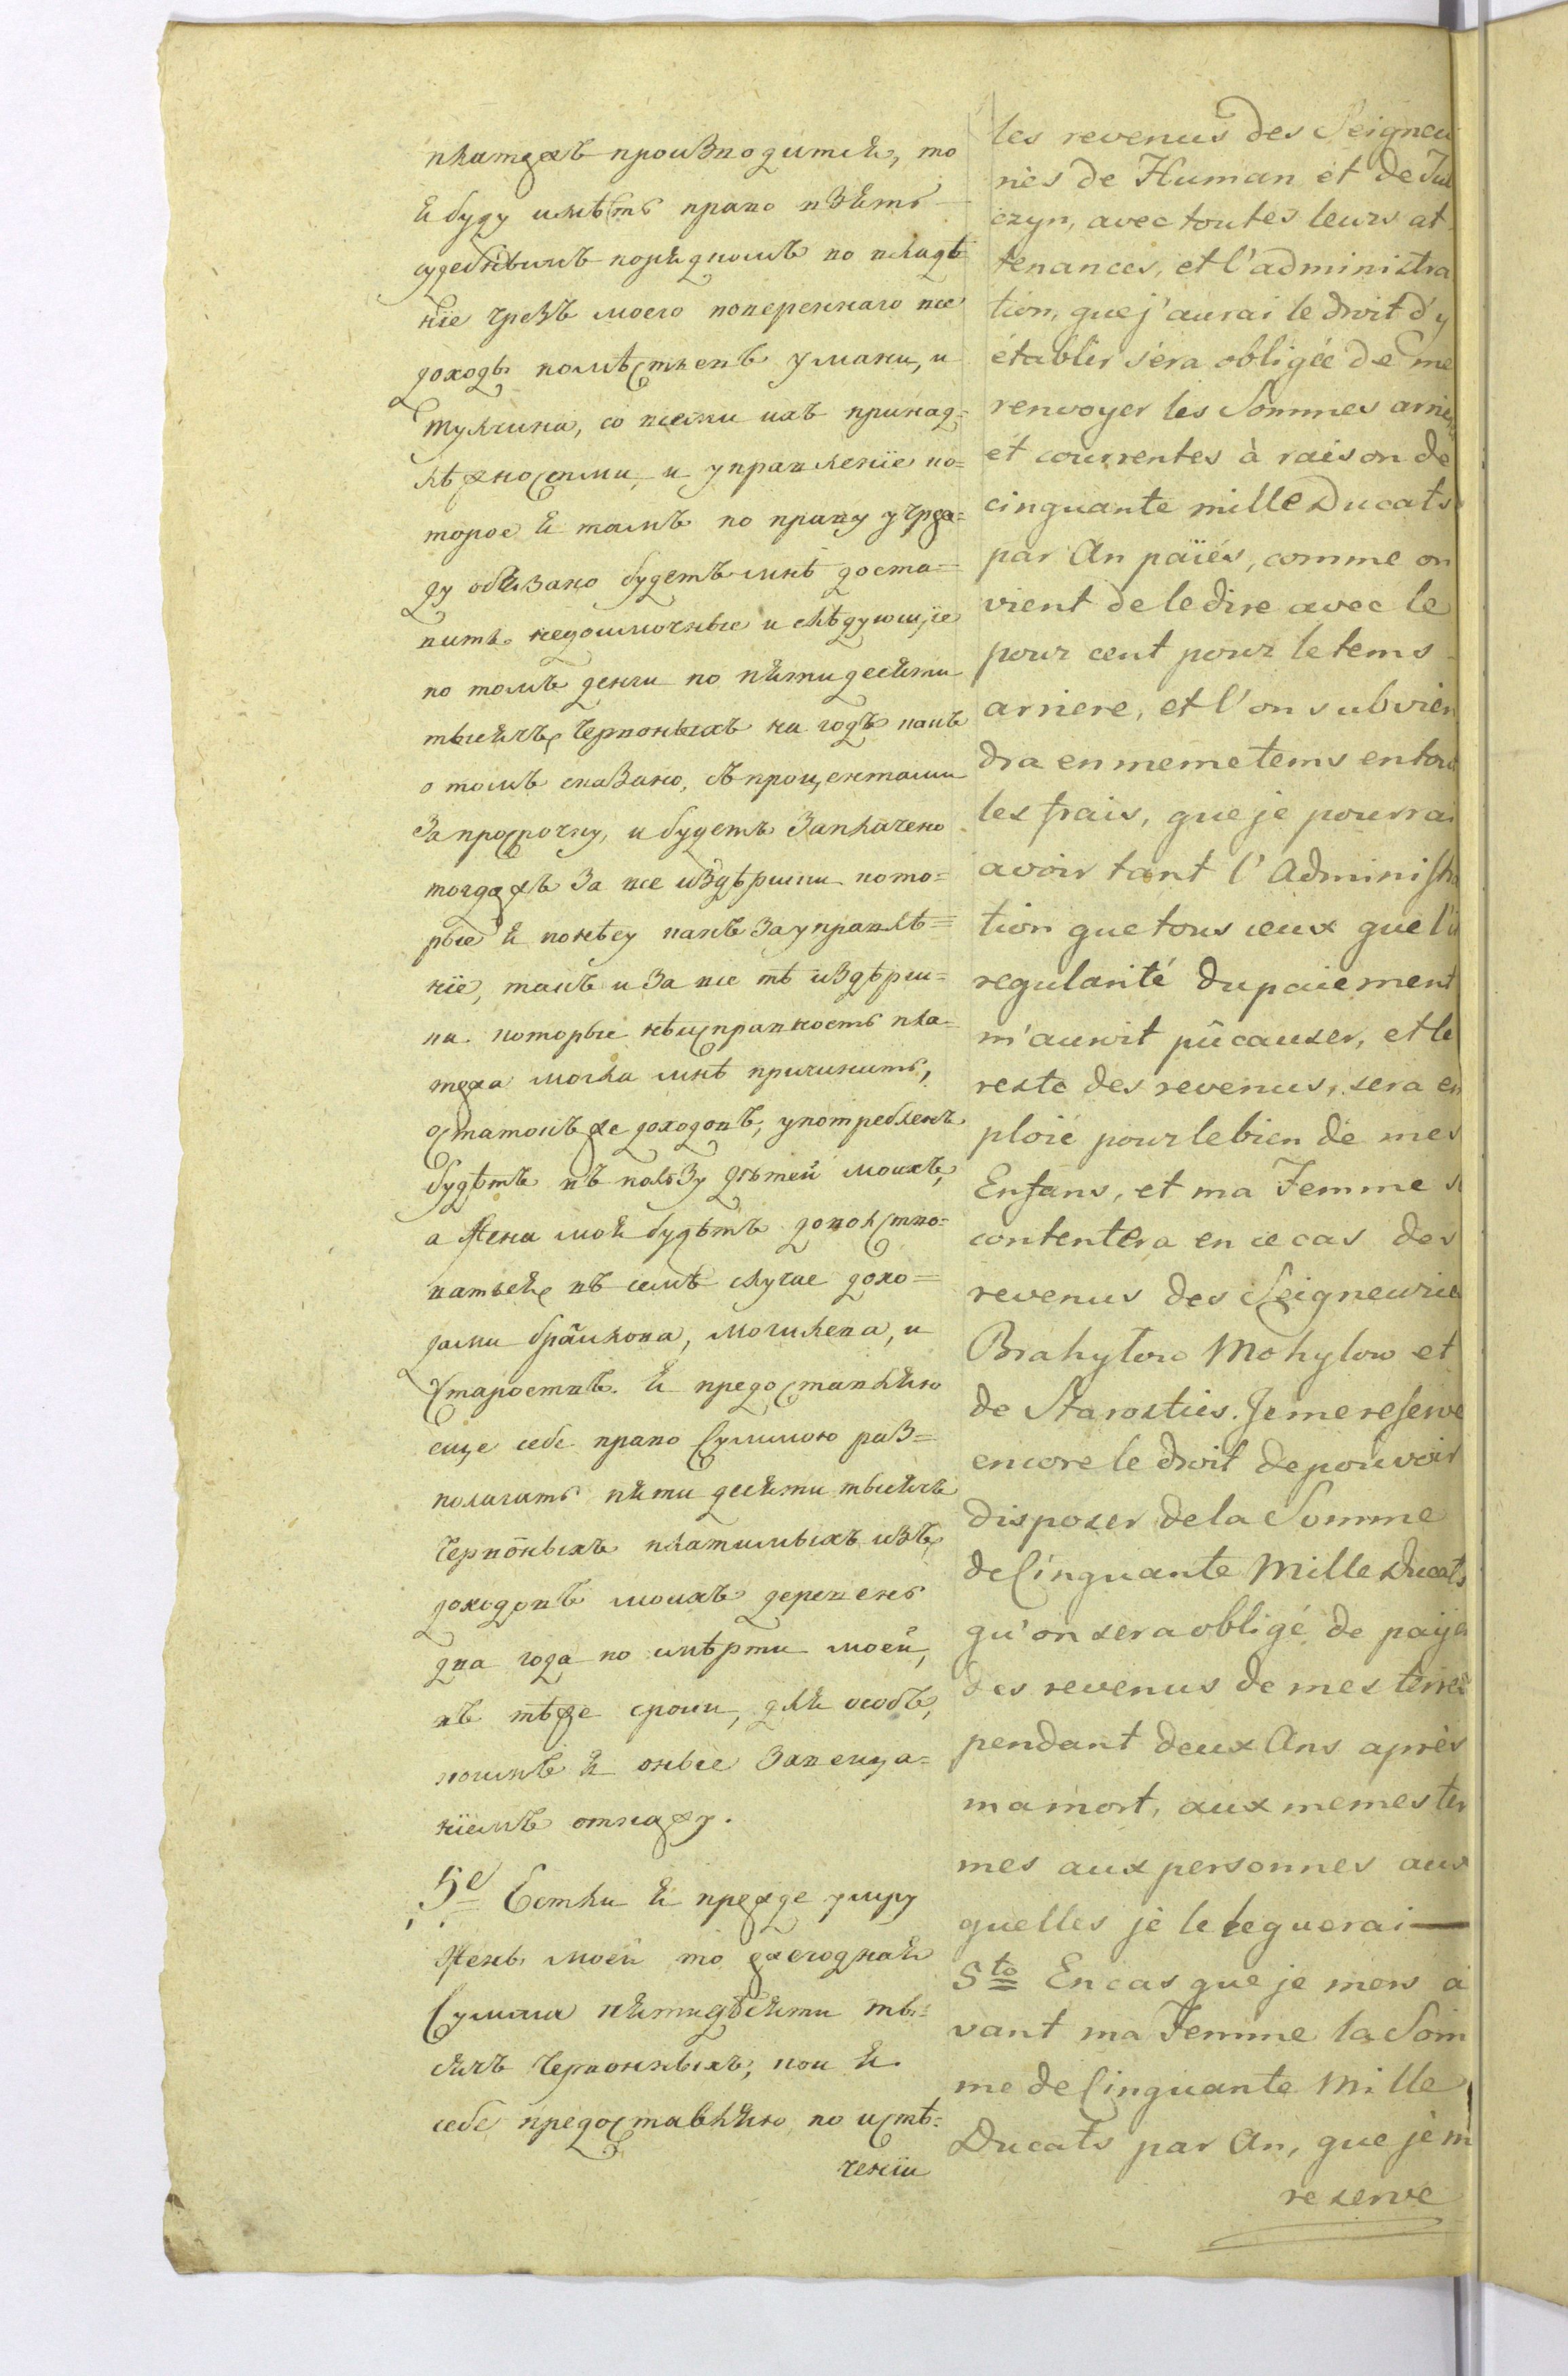 платежъ производится, то
я буду имѣть право взять
судебнымъ порядкомъ во владѣ
ніе чрезъ моего повереннаго все
доходы помѣстьевъ умани, и
тульчина, со всеми ихъ принад=
лѣжностьми, и управленіе ко=
торое я тамъ по праву учреж=
ду обязано будетъ мнѣ доста=
вить недоимочные и слѣдующіе
по томъ денги по пятидесяти
тысячъ червоныхъ на годъ какъ
о томъ сказано, съ процентами
за просрочку, и будетъ заплачено
тогдажъ за все издѣршки кото=
рые я понѣсу какъ за управлѣ=
ніе, такъ и за все тѣ издѣрш=
ки которые нѣисправность пла=
тежа могла мнѣ причинить,
остатокъ же доходовъ, употребленъ
будѣтъ въ пользу дѣтей моихъ,
а жена моя будѣтъ доволство=
ваться въ семъ случае дохо=
дами браилова, могилева, и
староствъ. Я предоставляю
еще себе право суммою раз=
полагать пяти десяти тысячъ
червоныхъ платимыхъ изъ
доходовъ моихъ деревень
два года по смѣрти моей,
въ тѣже сроки, для особъ,
коимъ я оные завеща=
ніемъ откажу.
5е Естли я прежде умру
жены моей то ежегодная
Сумма пятидѣсяти ты=
сячъ червонныхъ, кои я
себе предоставляю по истѣ=
ченіи
les revenus des Seigneu
ries de Human et de Tul
czyn, avec toutes leurs at
tenances, et l'administra
tion, que j'aurai le droit d'y
établir sera obligée de me
renvoyer les Sommes arrie
et courrentes à raison de
cinquante mille Ducats
par An païés, comme on
vient de le dire avec le
pour cent pour le tems
arriere, et l'on subvien
dra en meme tems en tout
les frais, que je pourrai
avoir tant l'Administra
tion que tous ceux que l'i
regularité du paiement
m'auroit pû causer, et le
reste des revenus, sera em
ploié pour le bien de mes
Enfans, et ma Femme s
contentera en ce cas des
revenus des Seigneurie
Brahylow Mohylow et
de Starosties. Je me reserve
encore le droit de pouvoir
disposer de la Somme
de Cinquante Mille Ducats
qu'on sera obligé de payer
des revenus de mes terres
pendant deux Ans après
ma mort, aux memes ter
mes aux personnes aux
quelles je le leguerai —
5to En cas que je mors a
vant ma Femme la Som
me de Cinquante Mille
Ducats par An, que je m
reserve